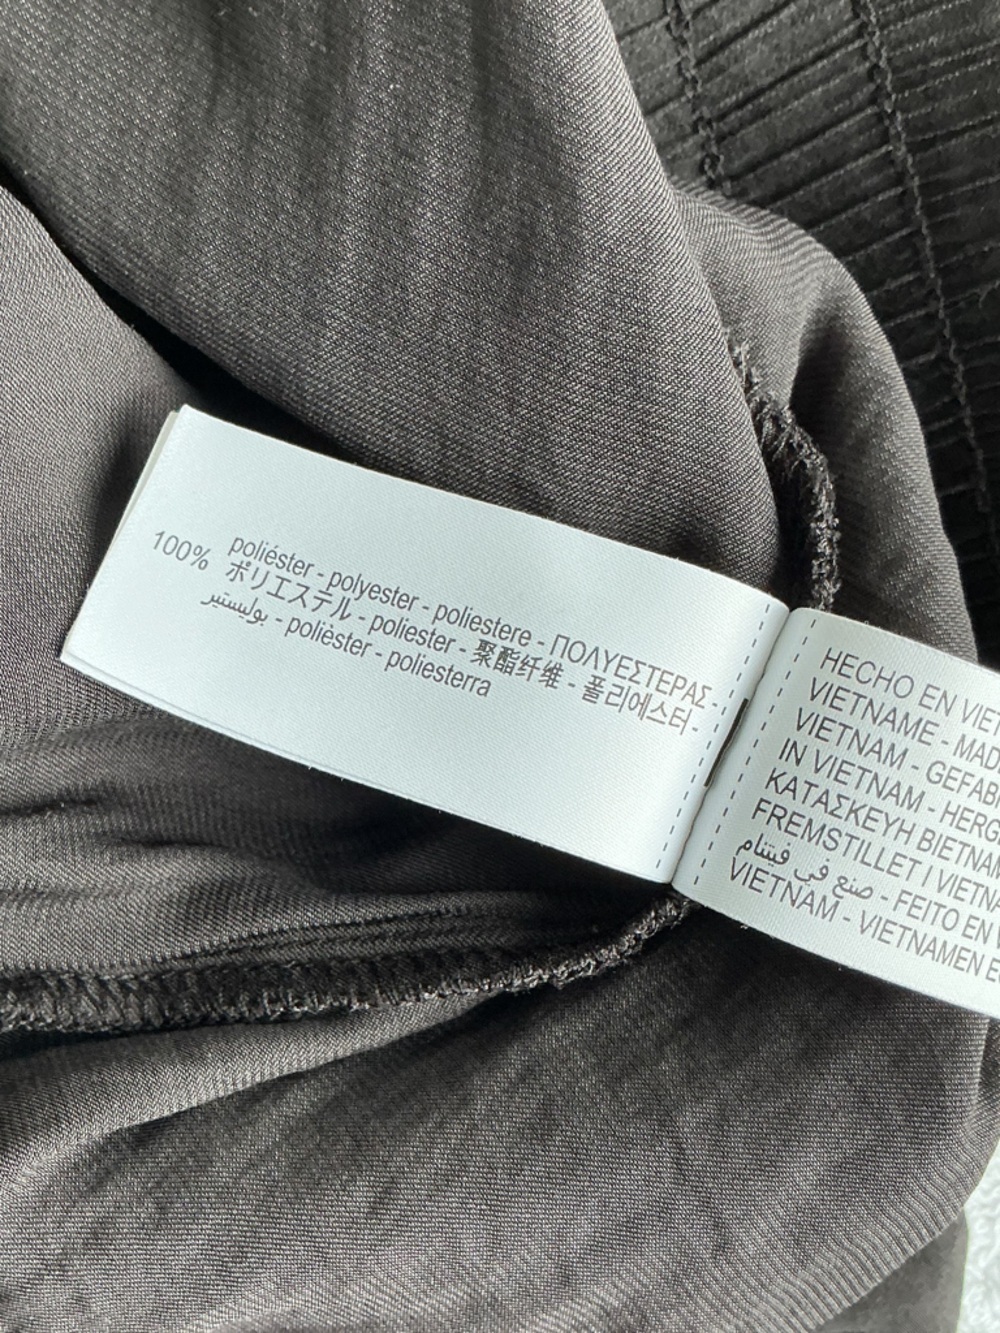 100% poliéster - polyester - poliestere - ΠΟΛΥΕΣΤΕΡΑΣ -
ポリエステル - poliester - 聚酯纤维 - 폴리에스터 -
بوليستير - polièster - poliesterra
HECHO EN
VIETNAME -
VIETNAM -
IN VIETNAM -
ΚΑΤΑΣΚΕΥΗ
FREMSTILLET I
صنع في فيتنام - FEITO EN
VIETNAM - VIETNAMEN